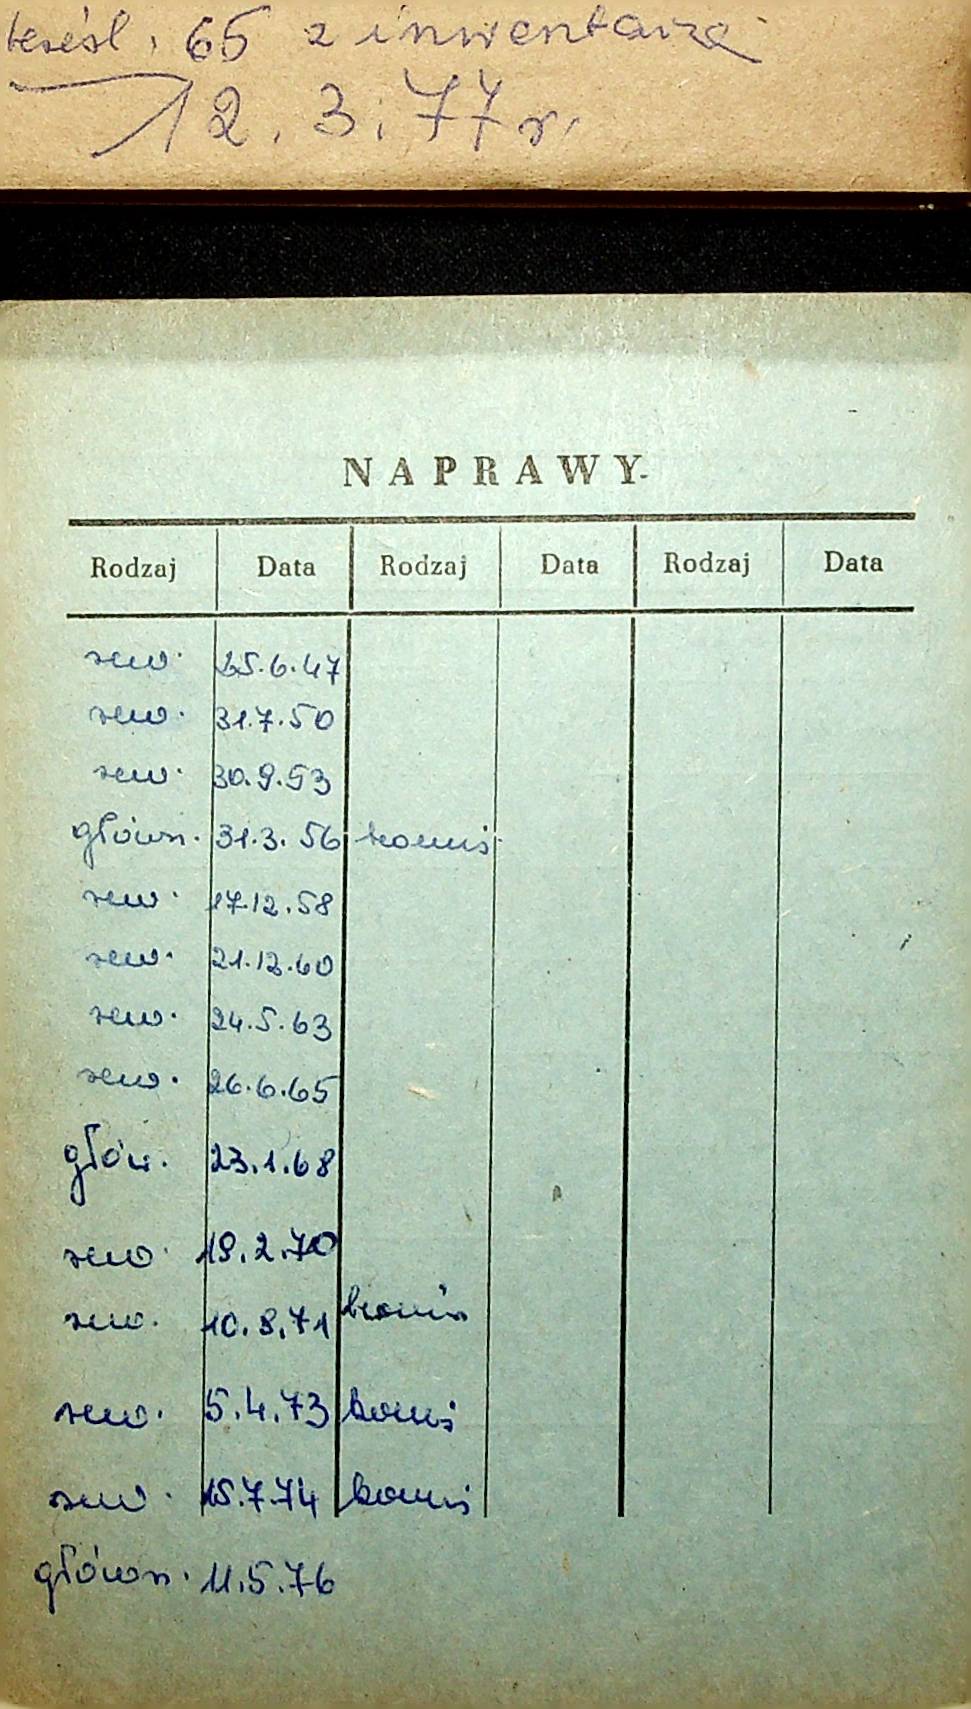 skreśl. 65 z inwentarza
12.3.77 r.
NAPRAWY
Rodzaj Data Rodzaj Data Rodzaj Data
rew. 25.6.47
rew. 31.7.50
rew. 30.9.53
główn. 31.3.56
rew. 17.12.58
rew. 21.12.60
rew. 24.5.63
rew. 26.6.65
główn. 23.1.68
rew. 19.2.70
rew. 10.8.71
rew. 5.4.73
rew. 15.7.74
główn. 11.5.76